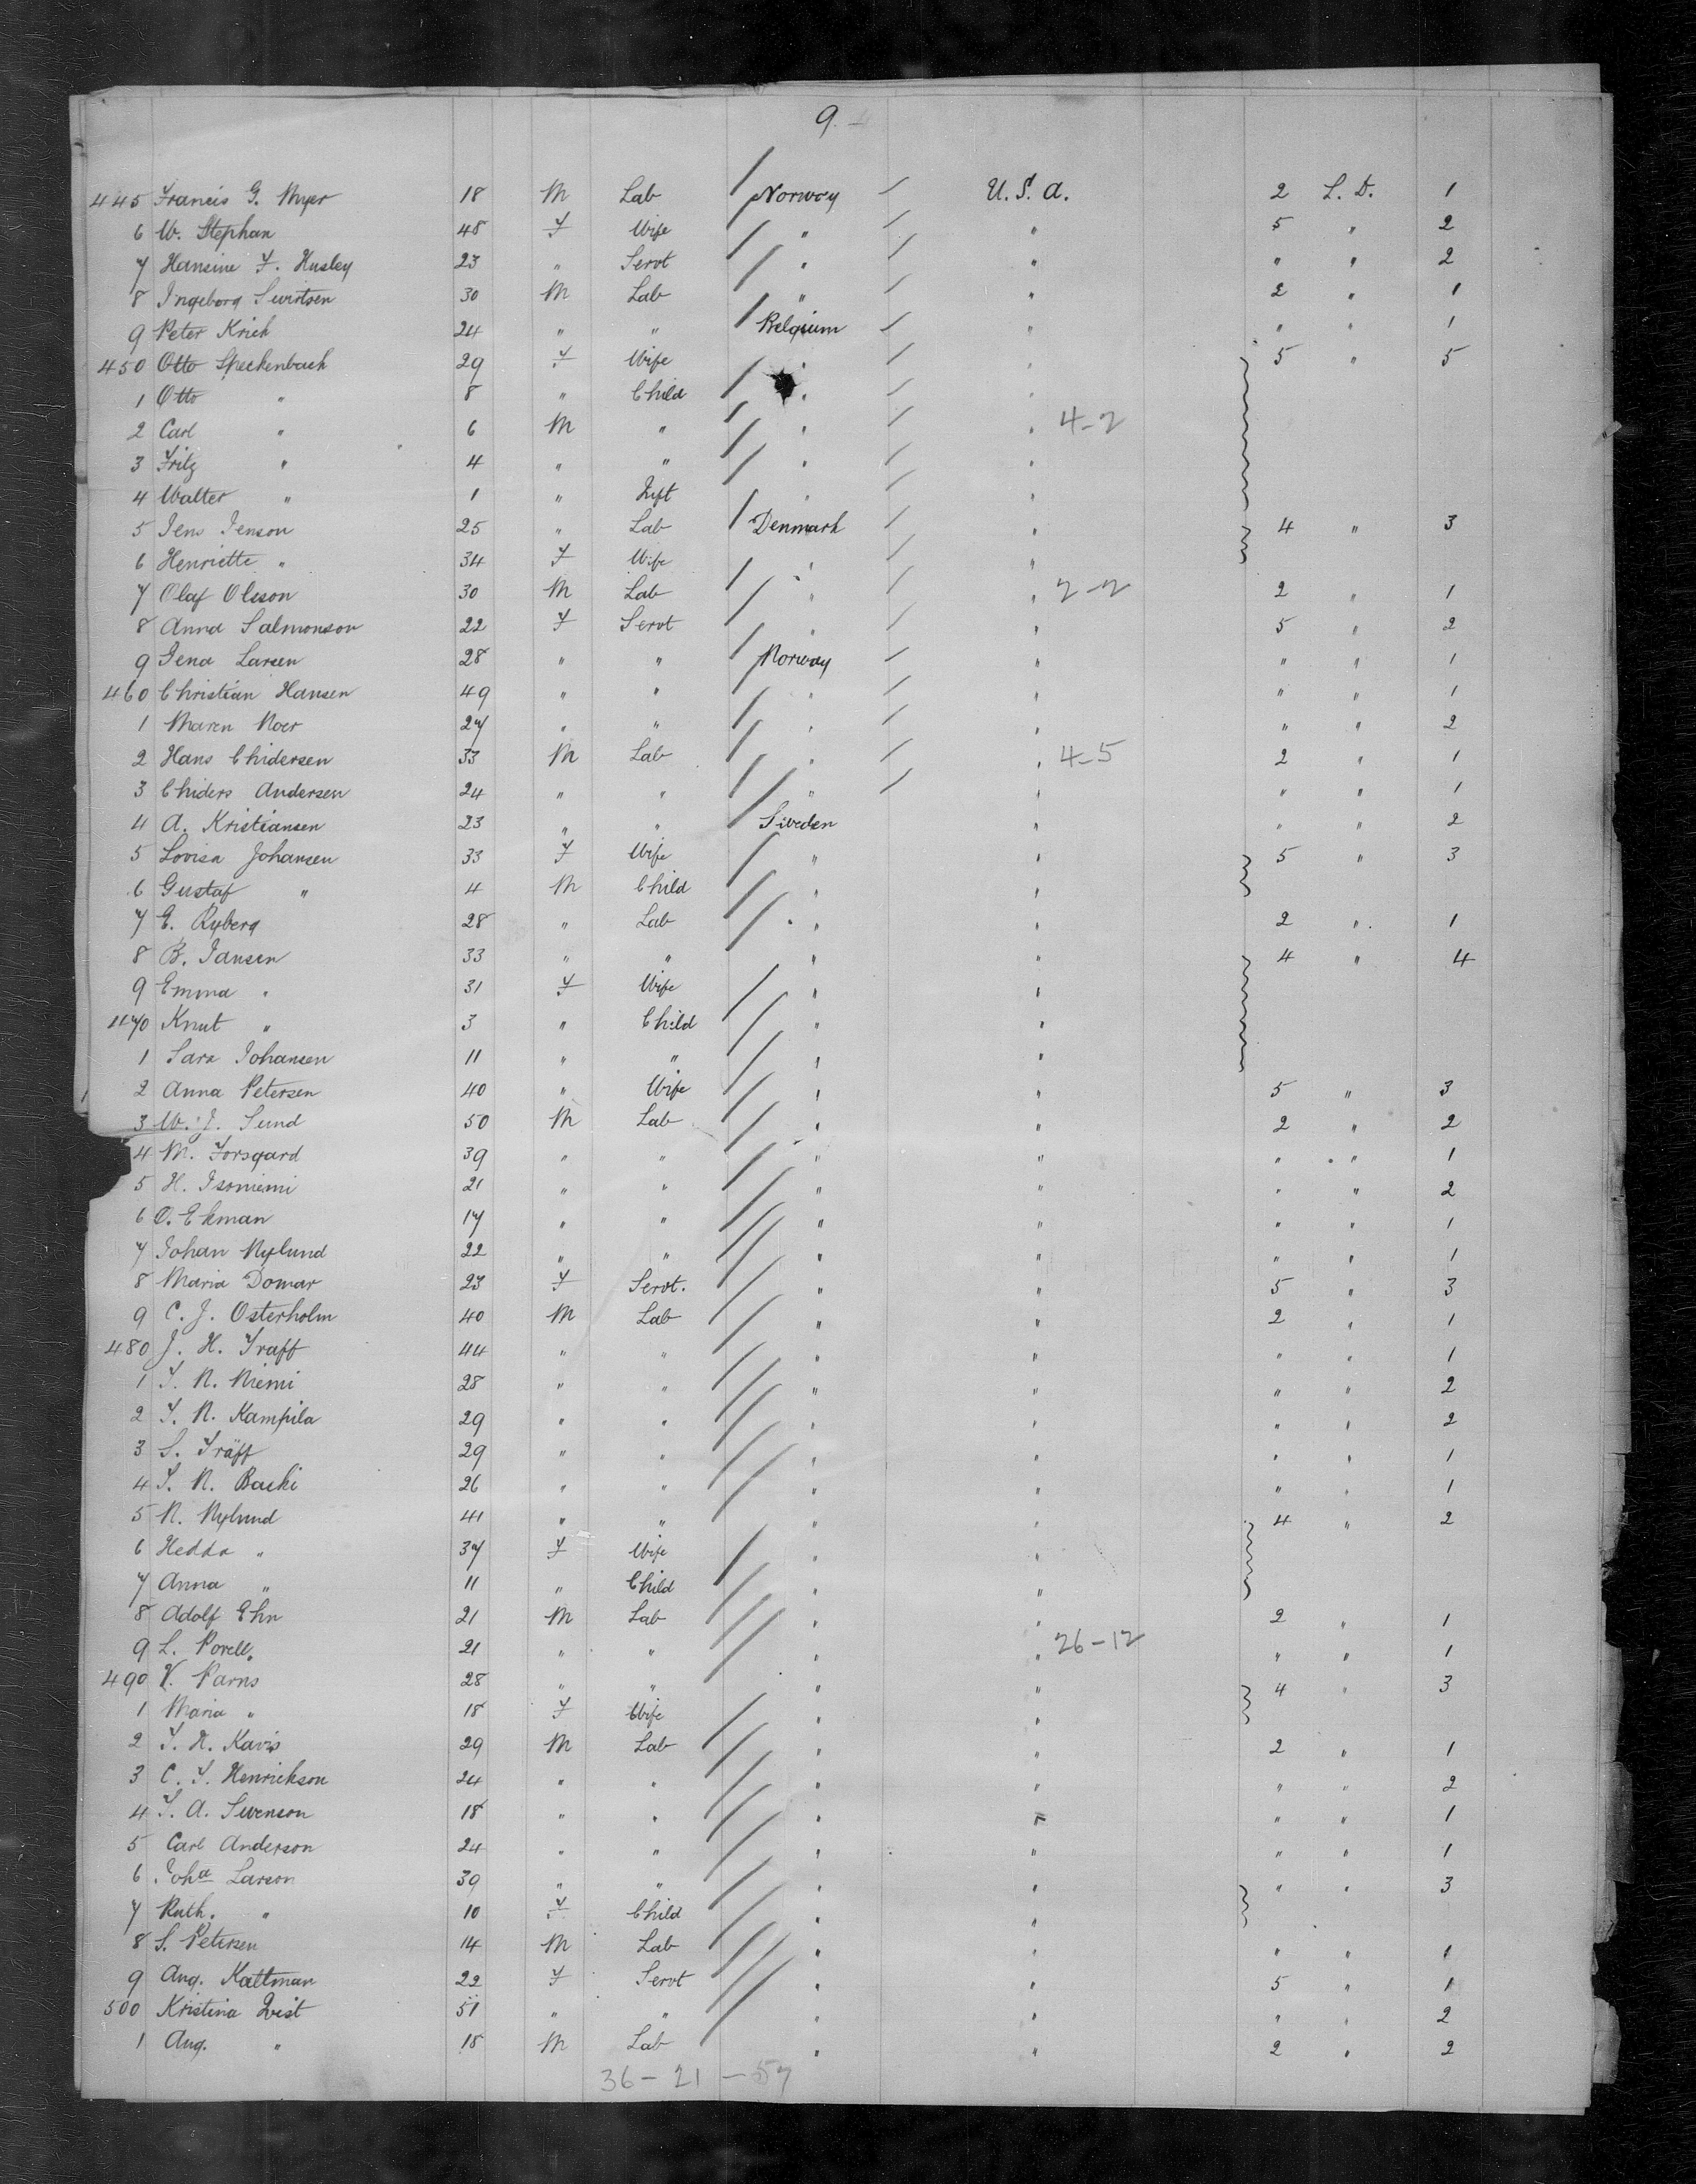 9.
445 Francis G. Myer 18 M Lab Norway U.S.A. 2 L.D. 1
6 W. Stephan 48 F Wife " " 5 " 2
7 Hansine F. Husley 23 " Servt " " " " 2
8 Ingeborg Swirtsen 30 M Lab " " 2 " 1
9 Peter Krich 24 " " Belgium " " " 1
450 Otto Speckenbach 29 F Wife " " 5 " 5
1 Otto " 8 " Child " "
2 Carl " 6 M " " " 4-2
3 Fritz " 4 " " " "
4 Walter " 1 " Inft " "
5 Jens Jenson 25 " Lab Denmark " 4 " 3
6 Henriette " 34 F Wife " "
7 Olaf Olsson 30 M Lab " " 2-2 2 " 1
8 Anna Salmonson 22 F Servt " " 5 " 2
9 Jena Larsen 28 " " Norway " " " 1
460 Christian Hansen 49 " " " " " " 1
1 Maren Noer 27 " " " " " " 2
2 Hans Chidersen 33 M Lab " " 4-5 2 " 1
3 Chiders Andersen 24 " " " " " " 1
4 A. Kristiansen 23 " " Sweden " " " 2
5 Lovisa Johansen 33 F Wife " " 5 " 3
6 Gustaf " 4 M Child " "
7 E. Ryberg 28 " Lab " " 2 " 1
8 B. Jansen 33 " " " " 4 " 4
9 Emma " 31 F Wife " "
470 Knut " 3 " Child " "
1 Sara Johansen 11 " " " "
2 Anna Petersen 40 " Wife " " 5 " 3
3 W. J. Sund 50 M Lab " " 2 " 2
4 M. Forsgard 39 " " " " " " 1
5 H. Isoniemi 21 " " " " " " 2
6 O. Ekman 17 " " " " " " 1
7 Johan Nylund 22 " " " " " " 1
8 Maria Domar 23 F Servt. " " 5 " 3
9 C. J. Osterholm 40 M Lab " " 2 " 1
480 J. H. Traff 44 " " " " " " 1
1 T. N. Niemi 28 " " " " " " 2
2 T. N. Kampila 29 " " " " " " 2
3 S. Träff 29 " " " " " " 1
4 T. N. Backi 26 " " " " " " 1
5 N. Nylund 41 " " " " 4 " 2
6 Hedda " 37 F Wife " "
7 Anna " 11 " Child " "
8 Adolf Ehn 21 M Lab " " 2 " 1
9 L. Porell 21 " " " " 26-12 " " 1
490 V. Parns 28 " " " " 4 " 3
1 Maria " 18 F Wife " "
2 T. N. Kavis 29 M Lab " " 2 " 1
3 C. T. Henrickson 24 " " " " " " 2
4 T. A. Swenson 18 " " " " " " 1
5 Carl Anderson 24 " " " " " " 1
6 Joha Larson 39 " " " " " " 3
7 Ruth. " 10 F Child " "
8 S. Petersen 14 M Lab " " " " 1
9 Aug. Kattman 22 F Servt " " 5 " 1
500 Kristina Qvist 51 " " " " " " 2
1 Aug. " 18 M Lab " " 2 " 2
36-21-57